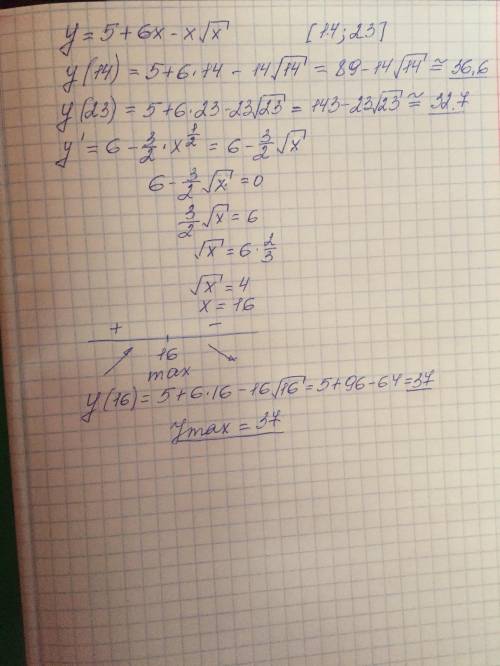 y = 5 + 6x - x√x [14; 23]
y(14) = 5+6·14 - 14√14 = 89-14√14 ≅ 36,6
y(23) = 5+6·23-23√23 = 143-23√23 ≅ 32,7
y' = 6 - 3/2 · x^(1/2) = 6 - 3/2 √x
6 - 3/2 √x = 0
3/2 √x = 6
√x = 6 · 2/3
√x = 4
x = 16
+ -
16
max
y(16) = 5+6·16-16√16 = 5+96-64 = 37
ymax = 37